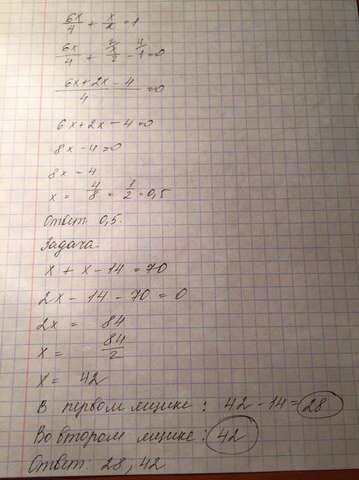 6x/4 + x/2 = 1
6x/4 + x/2 - 1 = 0
6x + 2x - 4 / 4 = 0
6x + 2x - 4 = 0
8x - 4 = 0
8x - 4
x = 4/8 = 1/2 = 0,5
Ответ 0,5.
Задача.
x + x - 14 = 70
2x - 14 - 70 = 0
2x = 84
x = 84/2
x = 42
В первом ящике: 42 - 14 = 28
Во втором ящике: 42
Ответ 28, 42